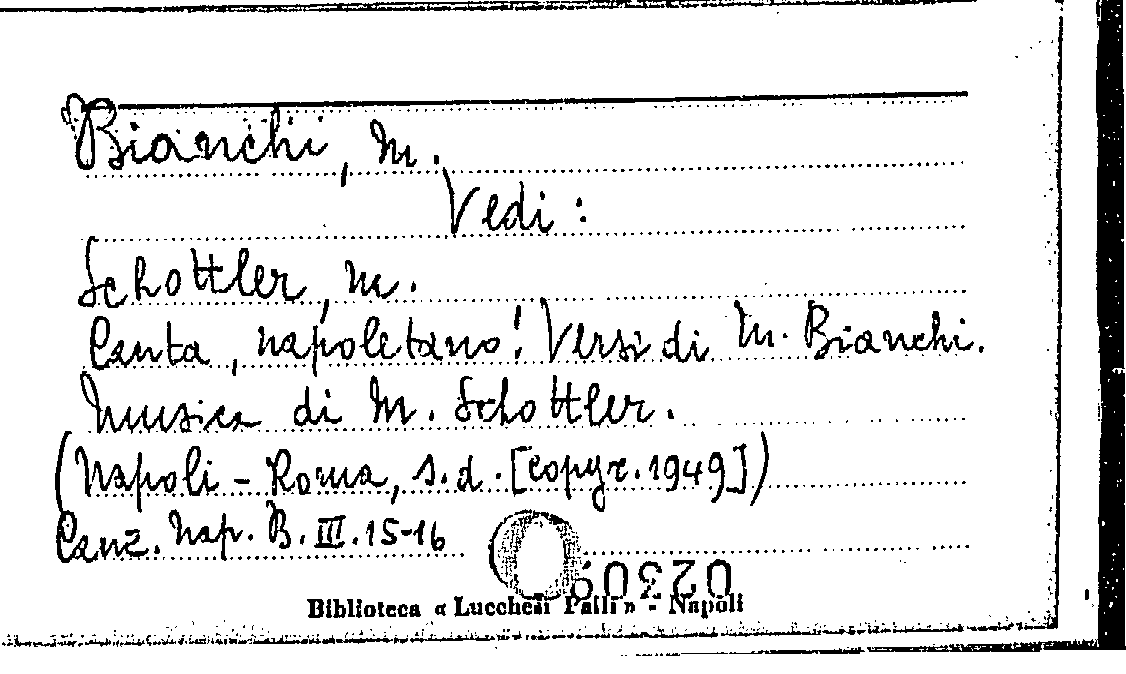 Bianchi, M.
Vedi:
Schottler, M.
Canta, napoletano! Versi di M. Bianchi.
Musica di M. Schottler.
(Napoli - Roma, s.d. [copyr. 1949])
Canz. Nap. B. III. 15-16
Biblioteca « Lucchesi Palli » - Napoli